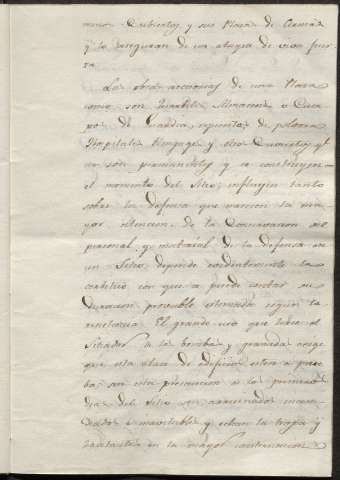 minos Cubiertos y sus Plazas de Armas
y lo aseguran de un ataque de viva fuer
za
Las obras accesorias de una Plaza
como son Quarteles Almacenes o Cuer
pos de Guardia, repuestos de polvora
Hospitales y otros Cuarteles qe
no son permanentes y se construyen
el momento del Sitio; influyen tanto
sobre la defensa que merecen la ma
yor atencion. de la Conservacion
personal y material de la defensa en
un Sitio depende evidentemente la
certeza con que se puede contar su
duracion probable segun la
El grande uso que hace el
Sitiador de las bombas y granadas exige
que esta clase de edificios esten a prue
ba; sin esta precaucion a los primeros
dias del Sitio son arruinados incen
diados e inhabitables y echan la tropa y
habitantes en la mayor consternacion y